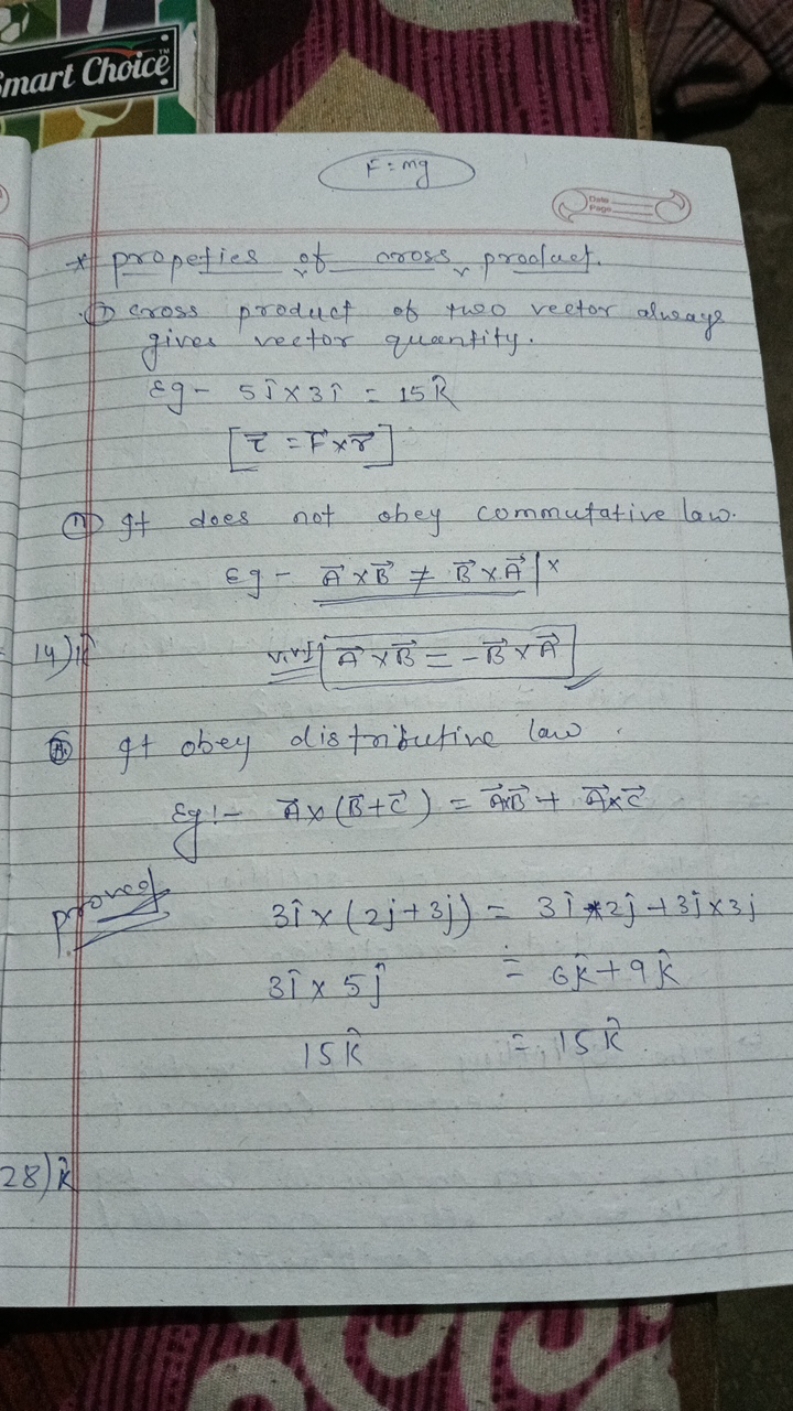 Smart Choice™
F = mg
Date
Page
* propeties of cross product.
① cross product of two vector always
gives vector quantity.
Eg - 5î × 3î = 15k̂
[τ⃗ = F⃗ × r⃗]
② It does not obey commutative law.
Eg - A⃗ × B⃗ ≠ B⃗ × A⃗ | ×
14)k̂
v.v.I [A⃗ × B⃗ = - B⃗ × A⃗]
It obey distributive law.
Eg :- A⃗ × (B⃗ + C⃗) = A⃗×B⃗ + A⃗×C⃗
proved
3î × (2j + 3j) = 3î × 2ĵ + 3î × 3j
3î × 5ĵ = 6k̂ + 9k̂
15k̂ = 15k̂
28)k̂